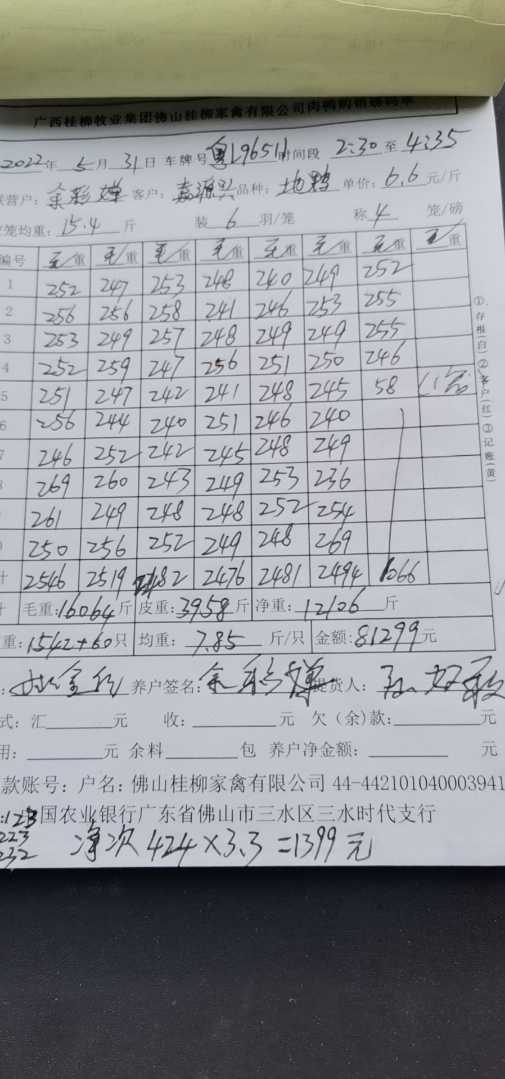 广西桂柳牧业集团佛山桂柳家禽有限公司肉鸭购销磅码单
2022年5月31日 车牌号粤L9651H时间段 2:30至4:35
联营户:余彩婵 客户:嘉源兴 品种:地鸭 单价:6.6元/斤
笼均重:15.4斤 装6羽/笼 称4笼/磅
编号 毛/重 毛/重 毛/重 毛/重 毛/重 毛/重 毛/重 毛/重
1 252 247 253 248 240 249 252
2 256 256 258 241 246 253 255
3 253 249 257 248 249 249 255
4 252 259 247 256 251 250 246
5 251 247 242 241 248 245 58 (1笼)
6 256 244 240 251 246 240
7 246 252 242 245 248 249
269 260 243 249 253 236
261 249 248 248 252 254
250 256 252 249 248 269
2546 2519 2482 2476 2481 2494 1066
毛重:16064斤 皮重:3958斤 净重:12106斤
重:1542+60只 均重:7.85斤/只 金额:81299元
养户签名: 提货人:
式:汇 元 收: 元 欠(余)款: 元
用: 元 余料 包 养户净金额: 元
款账号:户名:佛山桂柳家禽有限公司 44-442101040003941
国农业银行广东省佛山市三水区三水时代支行
123
223
232
净次 424×3.3=1399元
①存根(白)②客户(红)③记账(黄)